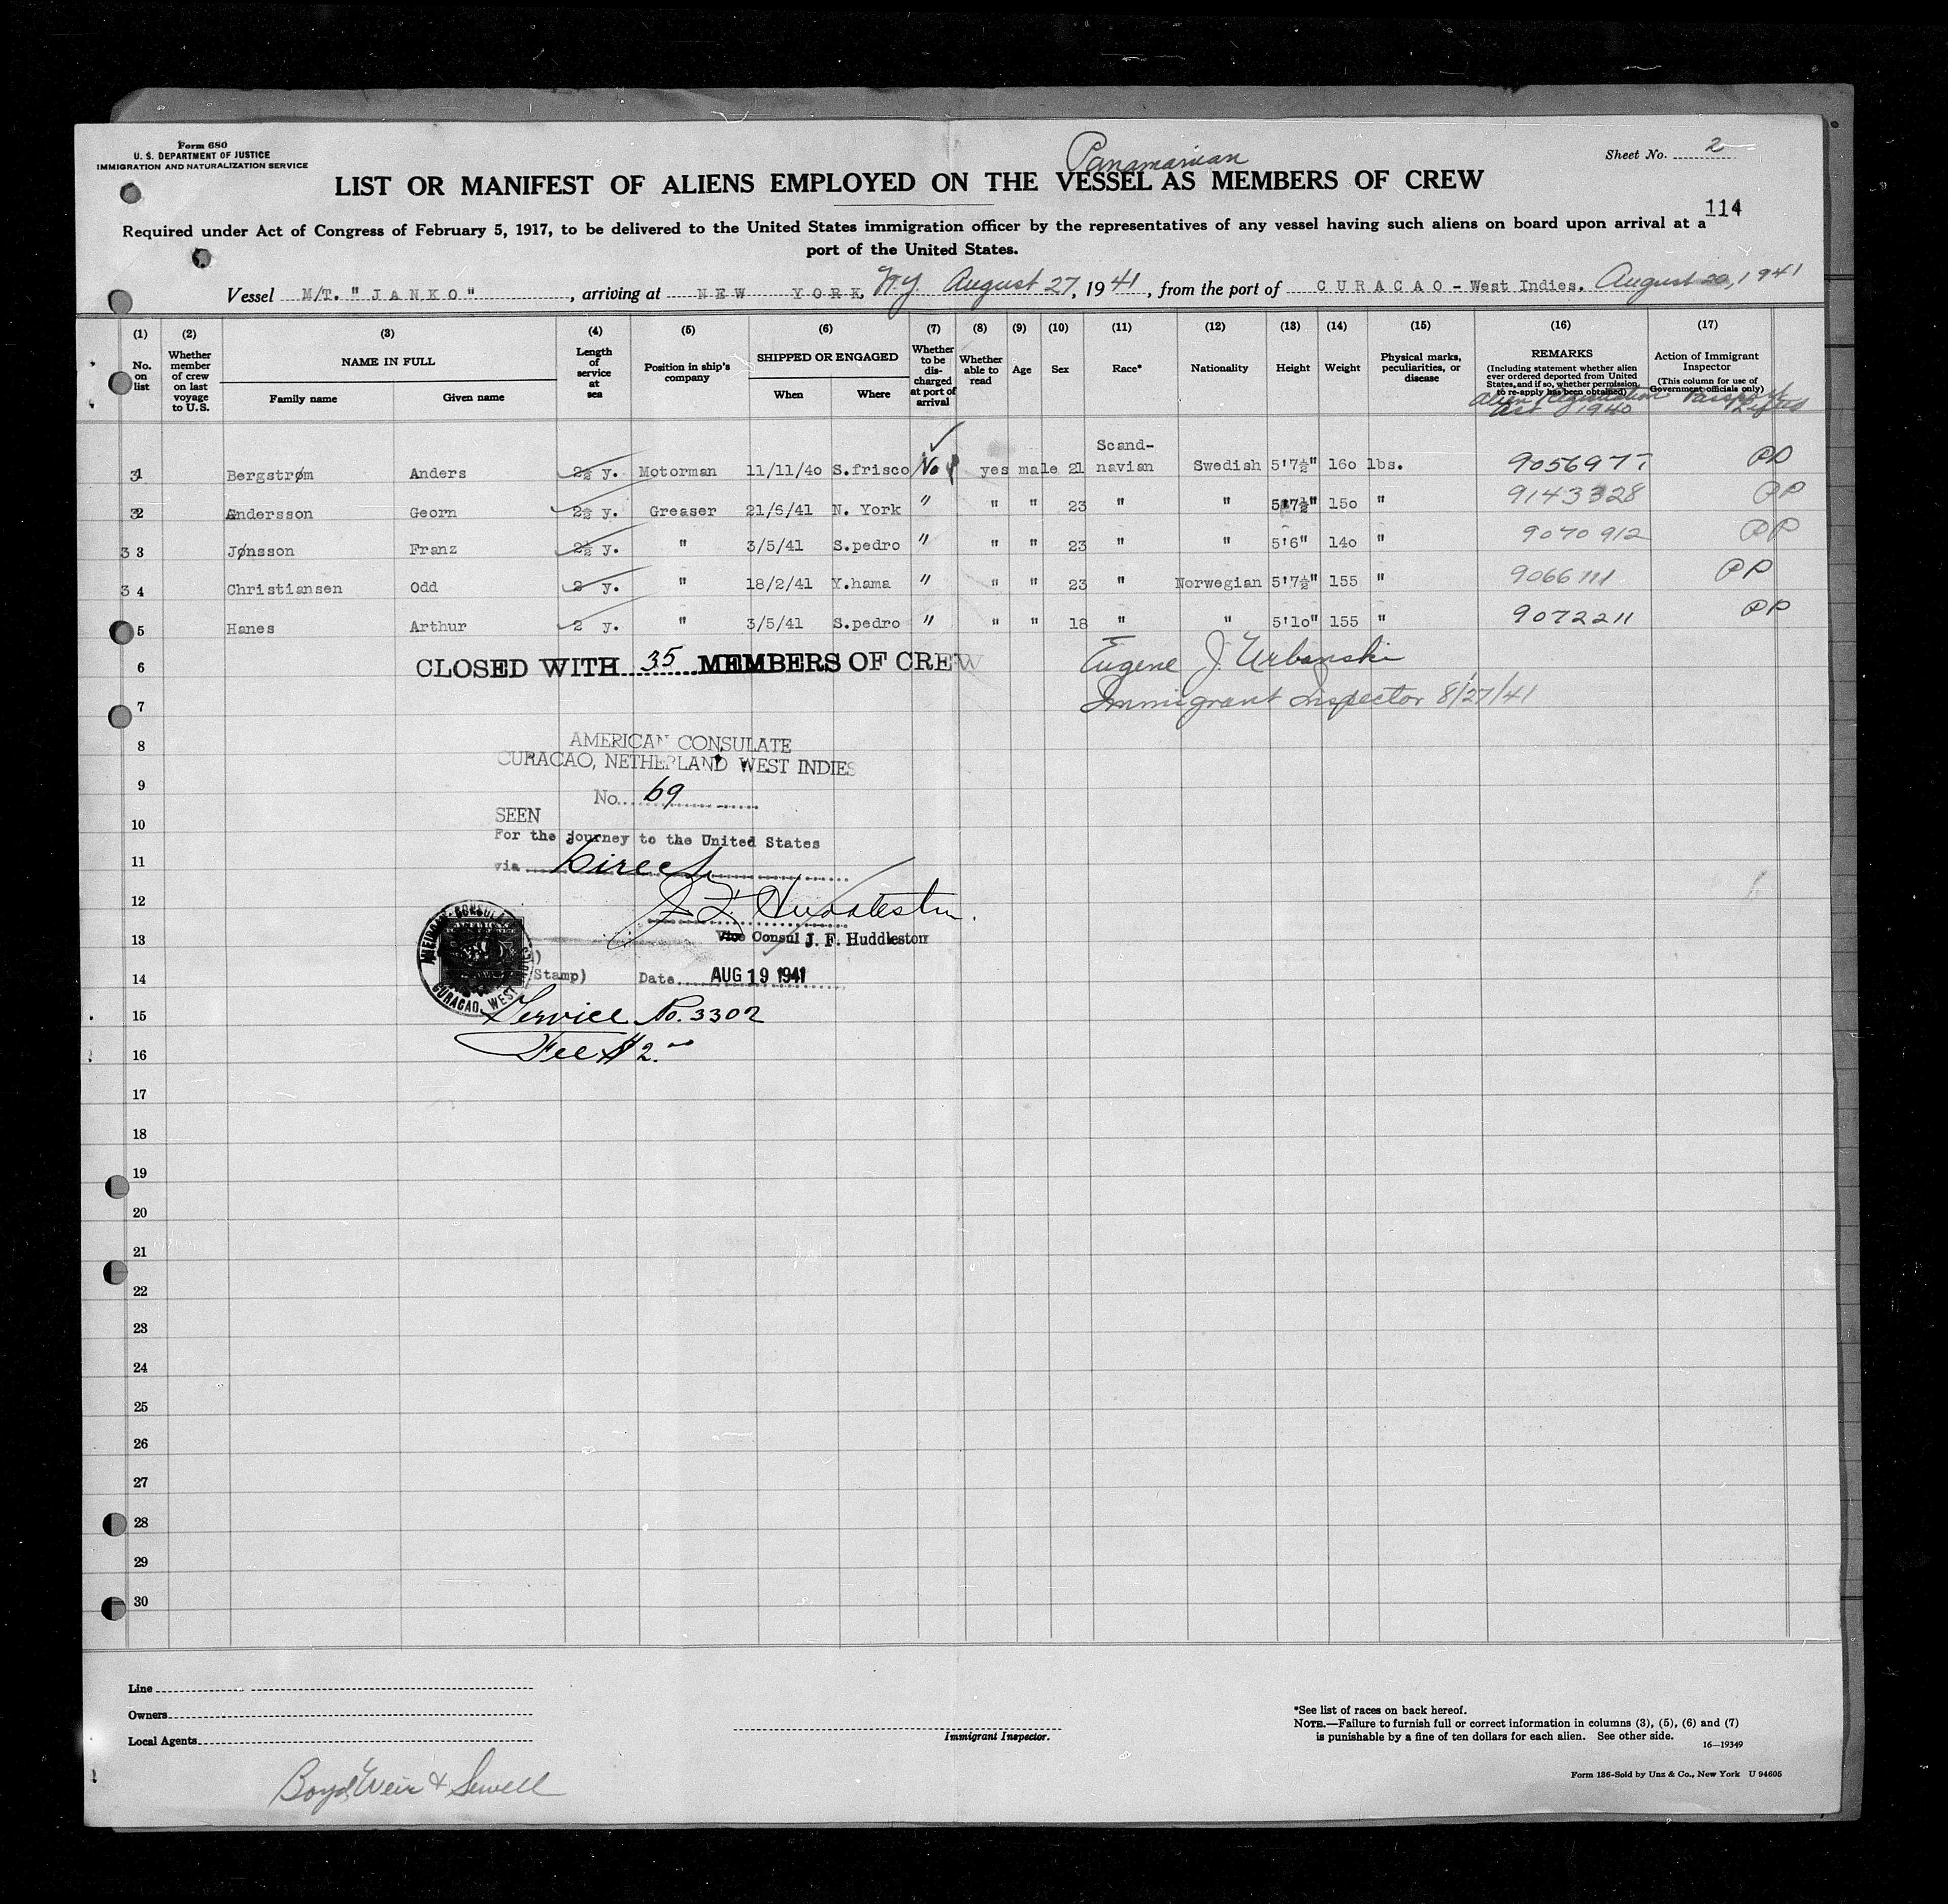 Form 680
U. S. DEPARTMENT OF JUSTICE
IMMIGRATION AND NATURALIZATION SERVICE
Panamanian
Sheet No. 2
LIST OR MANIFEST OF ALIENS EMPLOYED ON THE VESSEL AS MEMBERS OF CREW
114
Required under Act of Congress of February 5, 1917, to be delivered to the United States immigration officer by the representatives of any vessel having such aliens on board upon arrival at a
port of the United States.
Vessel M/T. "JANKO", arriving at NEW YORK, N.Y. August 27, 1941, from the port of CURACAO - West Indies. August 20, 1941
(1) (2) (3) (4) (5) (6) (7) (8) (9) (10) (11) (12) (13) (14) (15) (16) (17)
No. on list
Whether member of crew on last voyage to U.S.
NAME IN FULL
Family name Given name
Length of service at sea
Position in ship's company
SHIPPED OR ENGAGED
When Where
Whether to be discharged at port of arrival
Whether able to read
Age
Sex
Race*
Nationality
Height
Weight
Physical marks, peculiarities, or disease
REMARKS
(Including statement whether alien ever ordered deported from United States, and if so, whether permission to re-apply has been obtained)
Alien Registration Act 1940
Action of Immigrant Inspector
(This column for use of Government officials only)
Passport
Scand-
31 Bergstrøm Anders 2½ y. Motorman 11/11/40 S.frisco No yes male 21 navian Swedish 5'7½" 160 lbs. 9056977 PP
32 Andersson Georn 2½ y. Greaser 21/6/41 N. York " " " 23 " " 5'7½" 150 " 9143328 PP
33 Jønsson Franz 2½ y. " 3/5/41 S.pedro " " " 23 " " 5'6" 140 " 9070912 PP
34 Christiansen Odd 2 y. " 18/2/41 Y.hama " " " 23 " Norwegian 5'7½" 155 " 9066111 PP
5 Hanes Arthur 2 y. " 3/5/41 S.pedro " " " 18 " " 5'10" 155 " 9072211 PP
6 CLOSED WITH 35 MEMBERS OF CREW Eugene J. Urbanski
7 Immigrant Inspector 8/27/41
8 AMERICAN CONSULATE
CURACAO, NETHERLAND WEST INDIES
9 No. 69
10 SEEN
For the journey to the United States
11 via Direct
12 J. F. Huddleston
13 Vice Consul J. F. Huddleston
14 Stamp) Date AUG 19 1941
AMERICAN CONSUL
CURACAO, WEST INDIES
15 Service No. 3302
16 Fee $2.00
17
18
19
20
21
22
23
24
25
26
27
28
29
30
Line
Owners
Local Agents
Boyd, Weir & Sewell
Immigrant Inspector.
*See list of races on back hereof.
NOTE.—Failure to furnish full or correct information in columns (3), (5), (6) and (7)
is punishable by a fine of ten dollars for each alien. See other side.
16—19349
Form 136-Sold by Unz & Co., New York U 94605